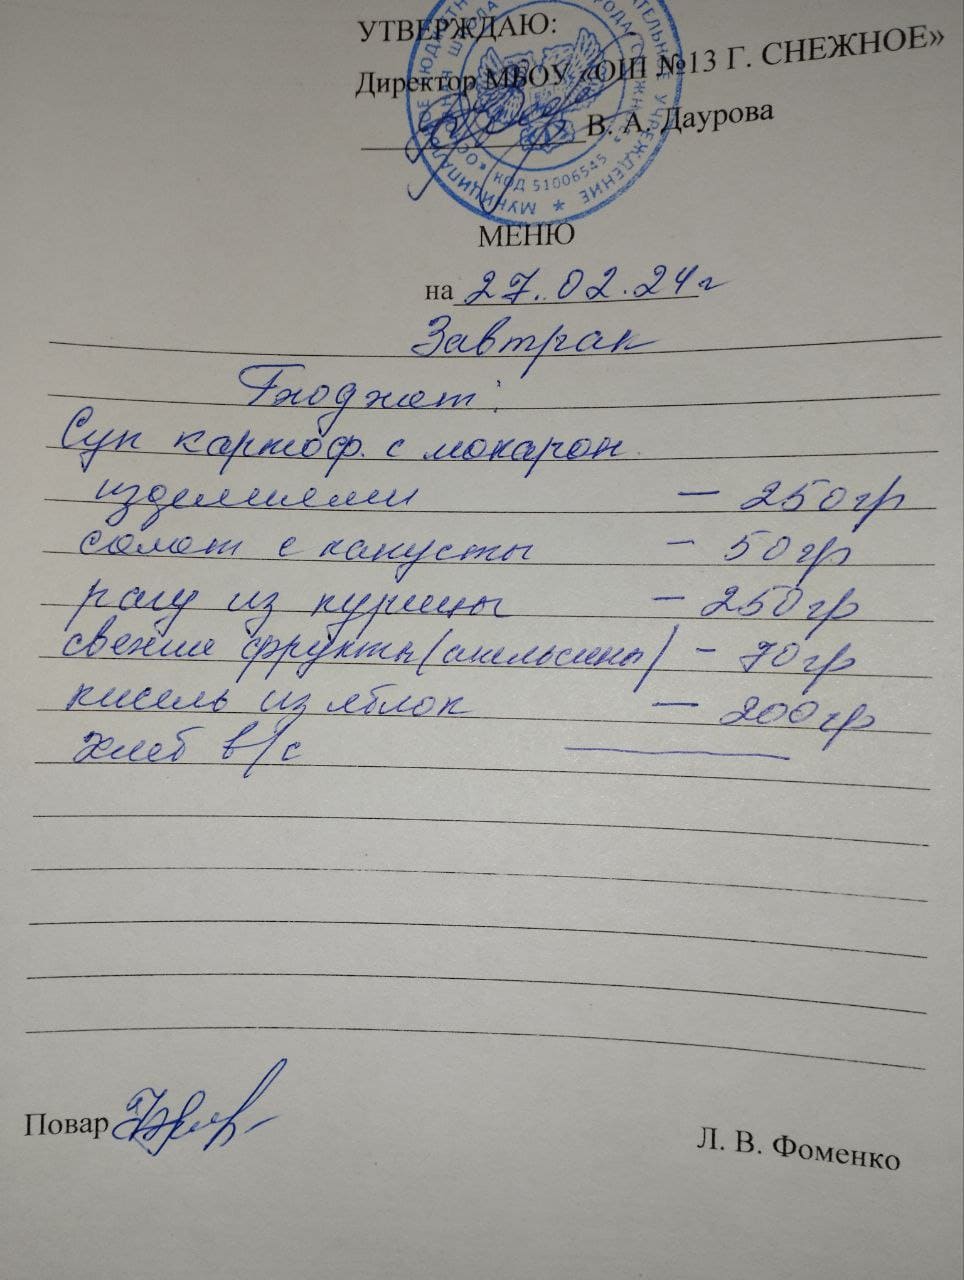 УТВЕРЖДАЮ:
Директор МБОУ «ОШ №13 Г. СНЕЖНОЕ»
В. А. Даурова
КОД 51006545
МУНИЦИПАЛЬНОЕ БЮДЖЕТН
УЧРЕЖДЕНИЕ
МЕНЮ
на 27.02.24г
Завтрак
Бюджет:
Суп картоф. с макарон
изделиями — 250гр
салат с капусты — 50гр
рагу из курицы — 250гр
свежие фрукты (апельсины) – 70гр
кисель из яблок — 200гр
хлеб в/с
Повар
Л. В. Фоменко